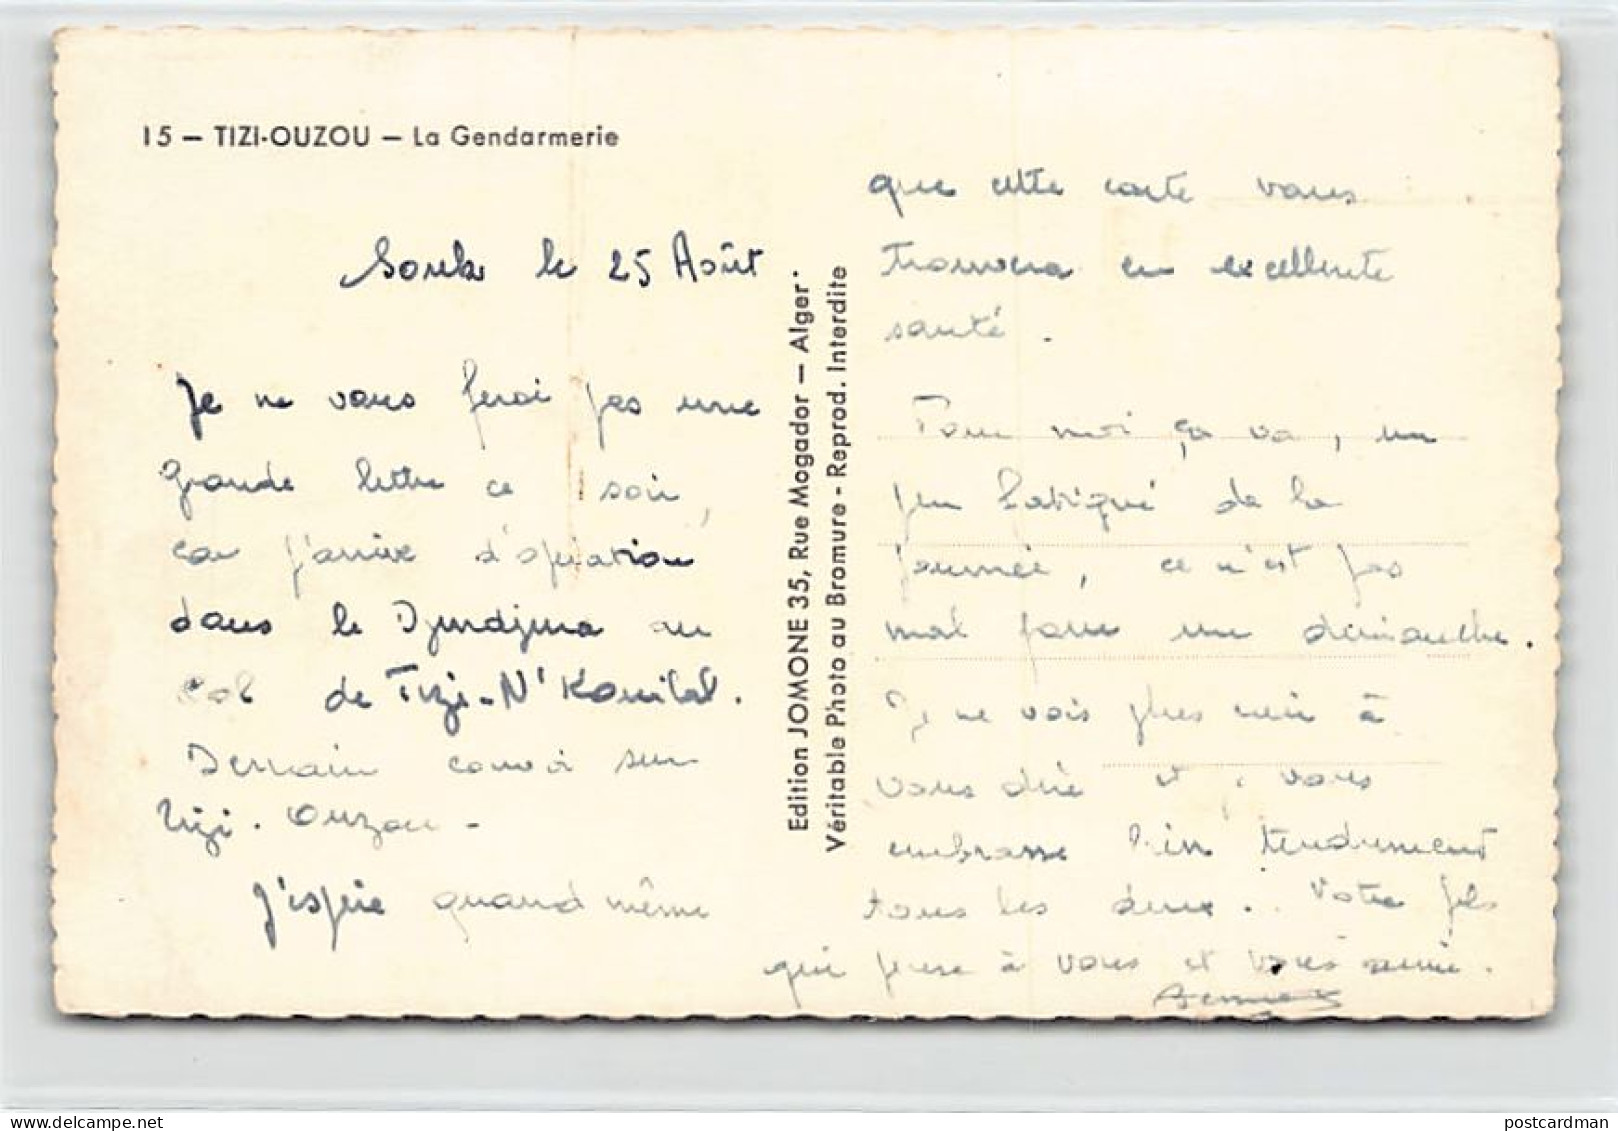 15 — TIZI-OUZOU — La Gendarmerie
le 25 Août
Je ne vous ferai pas une
grande lettre ce soir,
car j'arrive d'opération
dans le Djurdjura au
col de Tizi-N'Kouilal.
Demain convoi sur
Tizi-Ouzou.
J'espère quand même
Edition JOMONE 35, Rue Mogador — Alger.
Véritable Photo au Bromure - Reprod. Interdite
que cette carte vous
trouvera en excellente
santé.
Pour moi ça va, un
peu fatigué de la
journée, ce n'est pas
mal pour un dimanche.
Je ne vois plus rien à
vous dire et vous
embrasse bien tendrement
tous les deux. Votre fils
qui pense à vous et vous aime.
postcardman